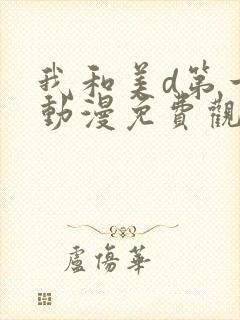 我和美d第一
動漫免費觀
盧傷華